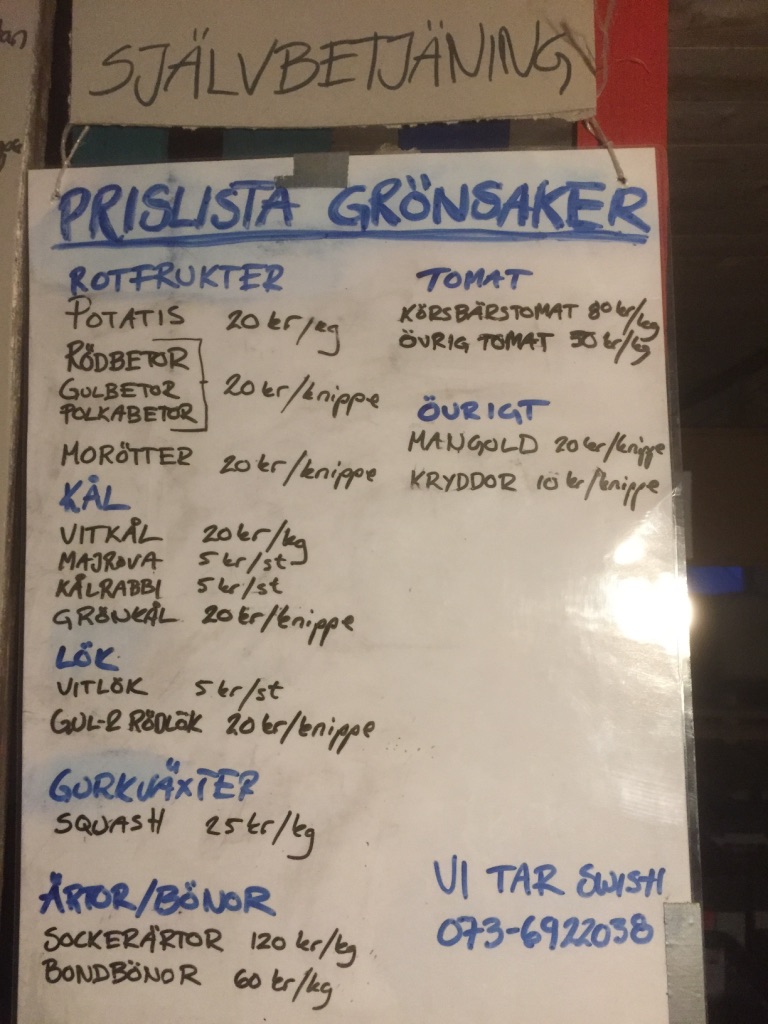 SJÄLVBETJÄNING
PRISLISTA GRÖNSAKER
ROTFRUKTER
POTATIS 20 kr/kg
RÖDBETOR
GULBETOR 20 kr/knippe
POLKABETOR
MORÖTTER 20 kr/knippe
KÅL
VITKÅL 20 kr/kg
MAJROVA 5 kr/st
KÅLRABBI 5 kr/st
GRÖNKÅL 20 kr/knippe
LÖK
VITLÖK 5 kr/st
GUL-& RÖDLÖK 20 kr/knippe
GURKVÄXTER
SQUASH 25 kr/kg
ÄRTOR/BÖNOR
SOCKERÄRTOR 120 kr/kg
BONDBÖNOR 60 kr/kg
TOMAT
KÖRSBÄRSTOMAT 80 kr/kg
ÖVRIG TOMAT 50 kr/kg
ÖVRIGT
MANGOLD 20 kr/knippe
KRYDDOR 10 kr/knippe
VI TAR SWISH
073-6922038